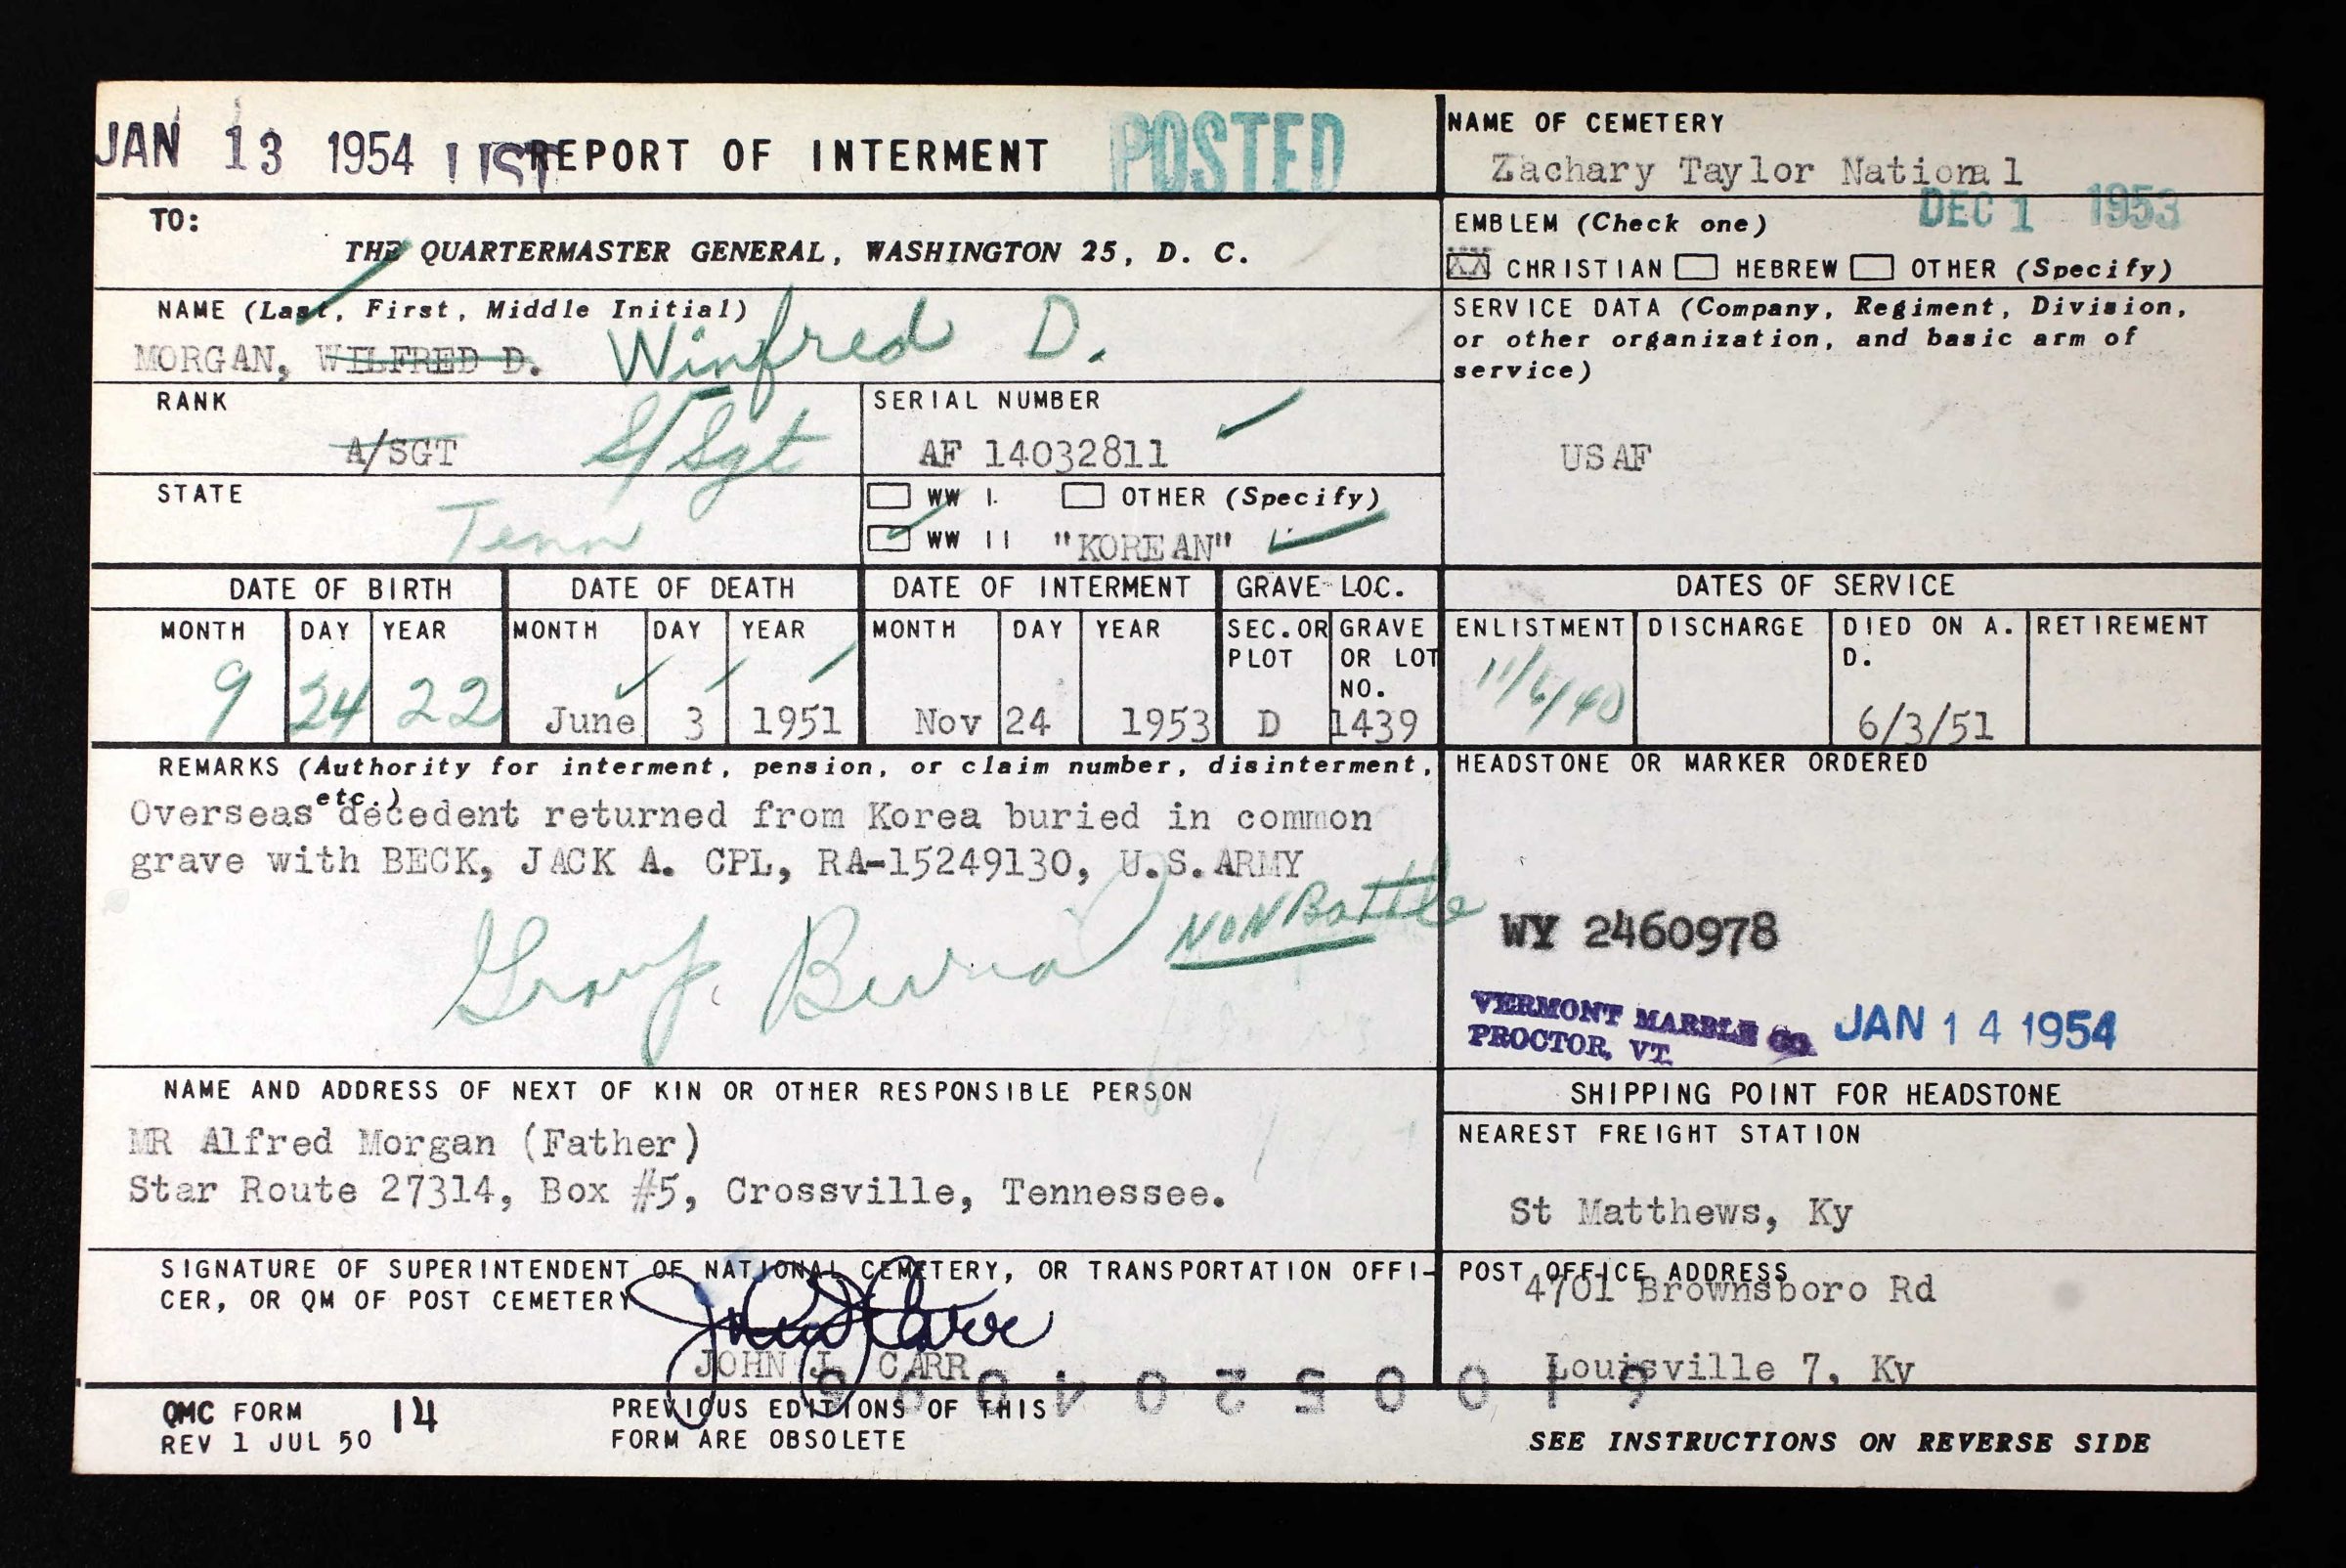 JAN 13 1954 LIST REPORT OF INTERMENT POSTED
TO:
THE QUARTERMASTER GENERAL, WASHINGTON 25, D. C.
NAME (Last, First, Middle Initial)
MORGAN, WILFRED D. Winfred D.
RANK
A/SGT S/Sgt
SERIAL NUMBER
AF 14032811
STATE
Tenn
WW I. OTHER (Specify)
WW II "KOREAN"
NAME OF CEMETERY
Zachary Taylor National
DEC 1 1953
EMBLEM (Check one)
XX CHRISTIAN HEBREW OTHER (Specify)
SERVICE DATA (Company, Regiment, Division,
or other organization, and basic arm of
service)
USAF
DATE OF BIRTH DATE OF DEATH DATE OF INTERMENT GRAVE LOC. DATES OF SERVICE
MONTH DAY YEAR MONTH DAY YEAR MONTH DAY YEAR SEC. OR PLOT GRAVE OR LOT NO. ENLISTMENT DISCHARGE DIED ON A. D. RETIREMENT
9 24 22 June 3 1951 Nov 24 1953 D 1439 11/6/40 6/3/51
REMARKS (Authority for interment, pension, or claim number, disinterment,
etc.)
Overseas decedent returned from Korea buried in common
grave with BECK, JACK A. CPL, RA-15249130, U.S. ARMY
Group Burial NON Battle
HEADSTONE OR MARKER ORDERED
WY 2460978
VERMONT MARBLE CO.
PROCTOR, VT.
JAN 14 1954
NAME AND ADDRESS OF NEXT OF KIN OR OTHER RESPONSIBLE PERSON
MR Alfred Morgan (Father)
Star Route 27314, Box #5, Crossville, Tennessee.
SHIPPING POINT FOR HEADSTONE
NEAREST FREIGHT STATION
St Matthews, Ky
SIGNATURE OF SUPERINTENDENT OF NATIONAL CEMETERY, OR TRANSPORTATION OFFI-
CER, OR QM OF POST CEMETERY
John J Carr
JOHN J. CARR
POST OFFICE ADDRESS
4701 Brownsboro Rd
Louisville 7, Ky
QMC FORM 14
REV 1 JUL 50
PREVIOUS EDITIONS OF THIS
FORM ARE OBSOLETE
SEE INSTRUCTIONS ON REVERSE SIDE